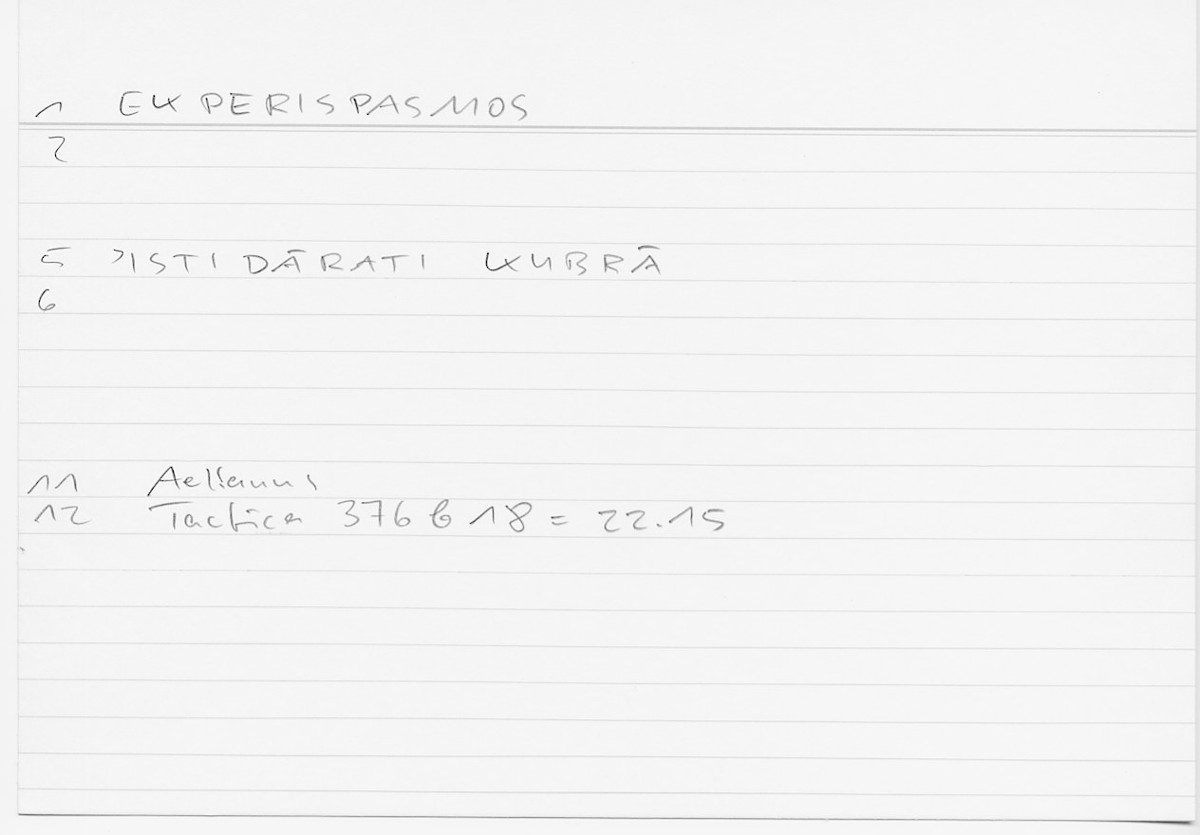 1 EKPERISPASMOS
2
5 ʾISTIDĀRATI KUBRĀ
6
11 Aelianus
12 Tactica 376 b 18 = 22.15